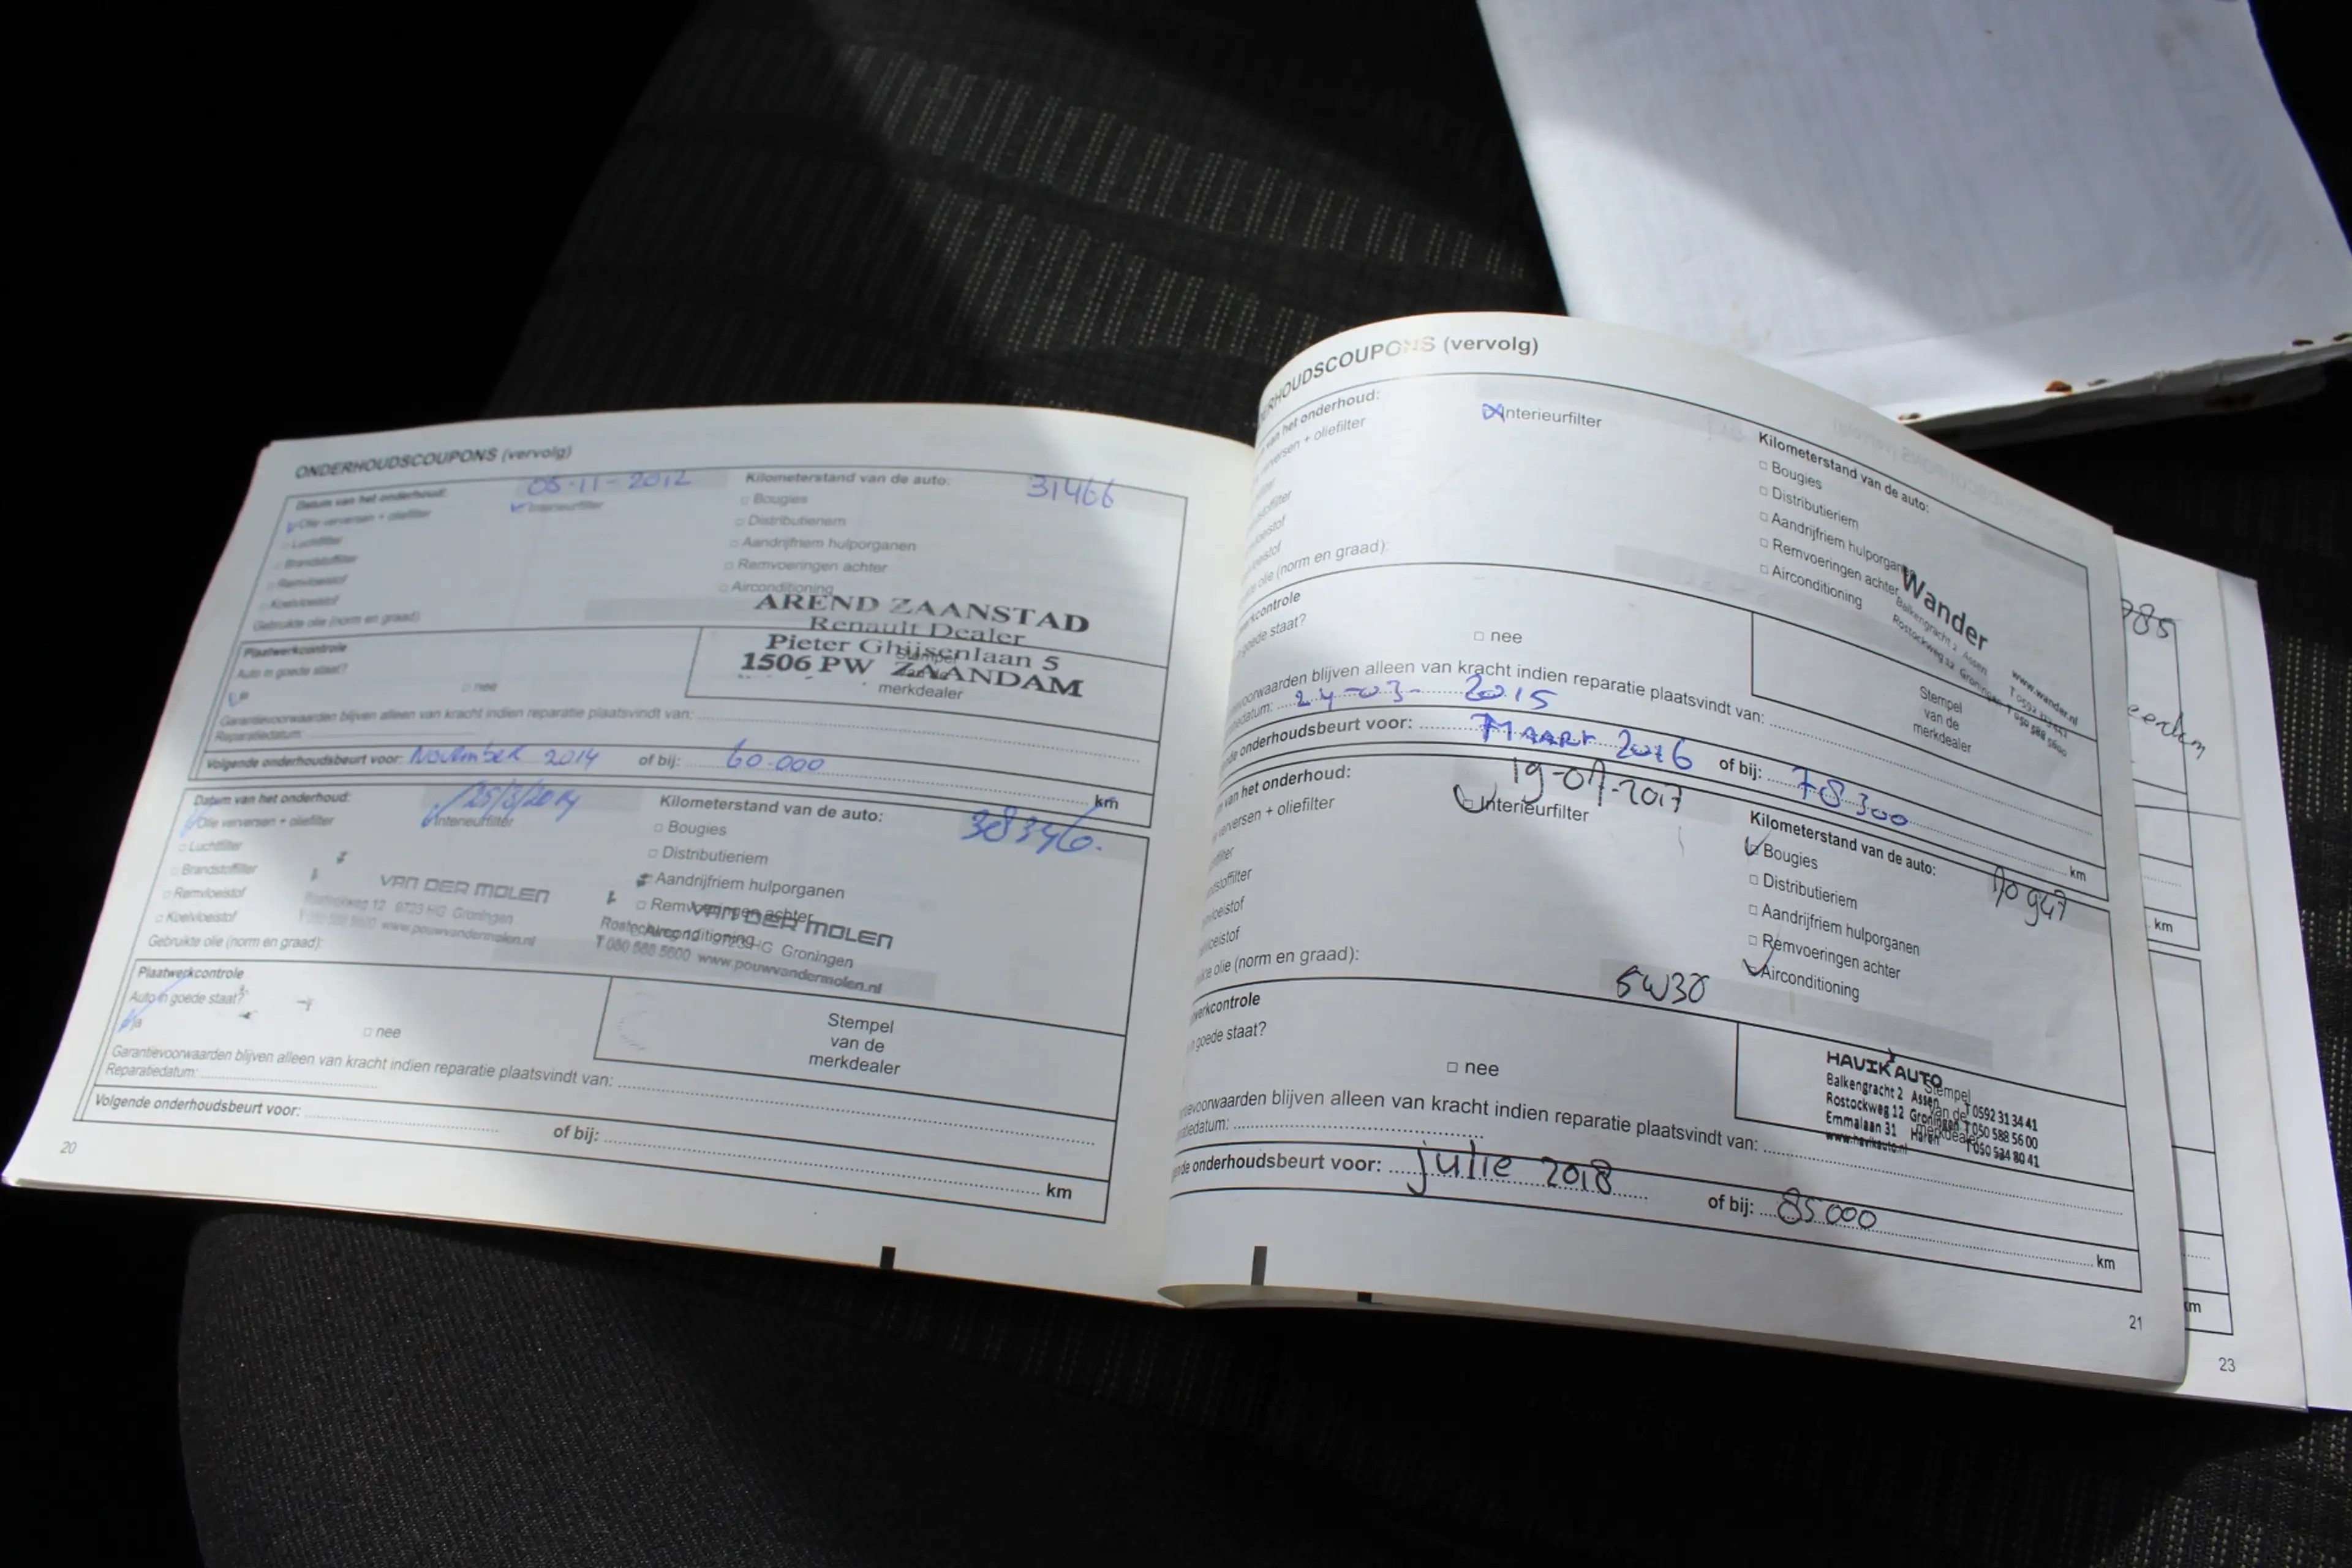 ONDERHOUDSCOUPONS (vervolg)
Datum van het onderhoud: 05-11-2012 Kilometerstand van de auto: 31466
Olie verversen + oliefilter Interieurfilter □ Bougies
□ Luchtfilter □ Distributieriem
□ Brandstoffilter □ Aandrijfriem hulporganen
□ Remvloeistof □ Remvoeringen achter
□ Koelvloeistof □ Airconditioning
Gebruikte olie (norm en graad):
AREND ZAANSTAD
Renault Dealer
Pieter Ghijsenlaan 5
1506 PW ZAANDAM
Plaatwerkcontrole
Auto in goede staat?
ja □ nee
Stempel
van de
merkdealer
Garantievoorwaarden blijven alleen van kracht indien reparatie plaatsvindt van:
Reparatiedatum:
Volgende onderhoudsbeurt voor: November 2014 of bij: 60.000 km
Datum van het onderhoud: Kilometerstand van de auto: 38346.
Olie verversen + oliefilter Interieurfilter □ Bougies
□ Luchtfilter □ Distributieriem
□ Brandstoffilter Aandrijfriem hulporganen
□ Remvloeistof □ Remvoeringen achter
□ Koelvloeistof Airconditioning
Gebruikte olie (norm en graad):
VAN DER MOLEN
Rostockweg 12 9723 HG Groningen
T 050 588 5600 www.pouwvandermolen.nl
VAN DER MOLEN
Rostockweg 12 9723 HG Groningen
T 050 588 5600 www.pouwvandermolen.nl
Plaatwerkcontrole
Auto in goede staat?
ja □ nee
Stempel
van de
merkdealer
Garantievoorwaarden blijven alleen van kracht indien reparatie plaatsvindt van:
Reparatiedatum:
Volgende onderhoudsbeurt voor: of bij: km
20
ERHOUDSCOUPONS (vervolg)
van het onderhoud: Kilometerstand van de auto:
verversen + oliefilter Interieurfilter □ Bougies
□ Distributieriem
□ Aandrijfriem hulporganen
□ Remvoeringen achter
□ Airconditioning
olie (norm en graad):
Wander
Balkengracht 2 Assen
Rostockweg 12 Groningen
www.wander.nl
T 050 588 5600
werkcontrole
goede staat?
□ nee
Stempel
van de
merkdealer
voorwaarden blijven alleen van kracht indien reparatie plaatsvindt van:
iedatum: 24-03-2015
nde onderhoudsbeurt voor: Maart 2016 of bij: 78300 km
van het onderhoud: 19-07-2017 Kilometerstand van de auto:
verversen + oliefilter □ Interieurfilter □ Bougies
□ Distributieriem
□ Aandrijfriem hulporganen
□ Remvoeringen achter
Airconditioning
olie (norm en graad): 5W30
werkcontrole
goede staat?
□ nee
HAVIK AUTO
Balkengracht 2 Assen T 0592 31 34 41
Rostockweg 12 Groningen T 050 588 56 00
Emmalaan 31 Haren T 050 534 80 41
www.havikauto.nl
Stempel
van de
merkdealer
voorwaarden blijven alleen van kracht indien reparatie plaatsvindt van:
iedatum:
nde onderhoudsbeurt voor: julie 2018 of bij: 85000 km
21
785
km
km
23